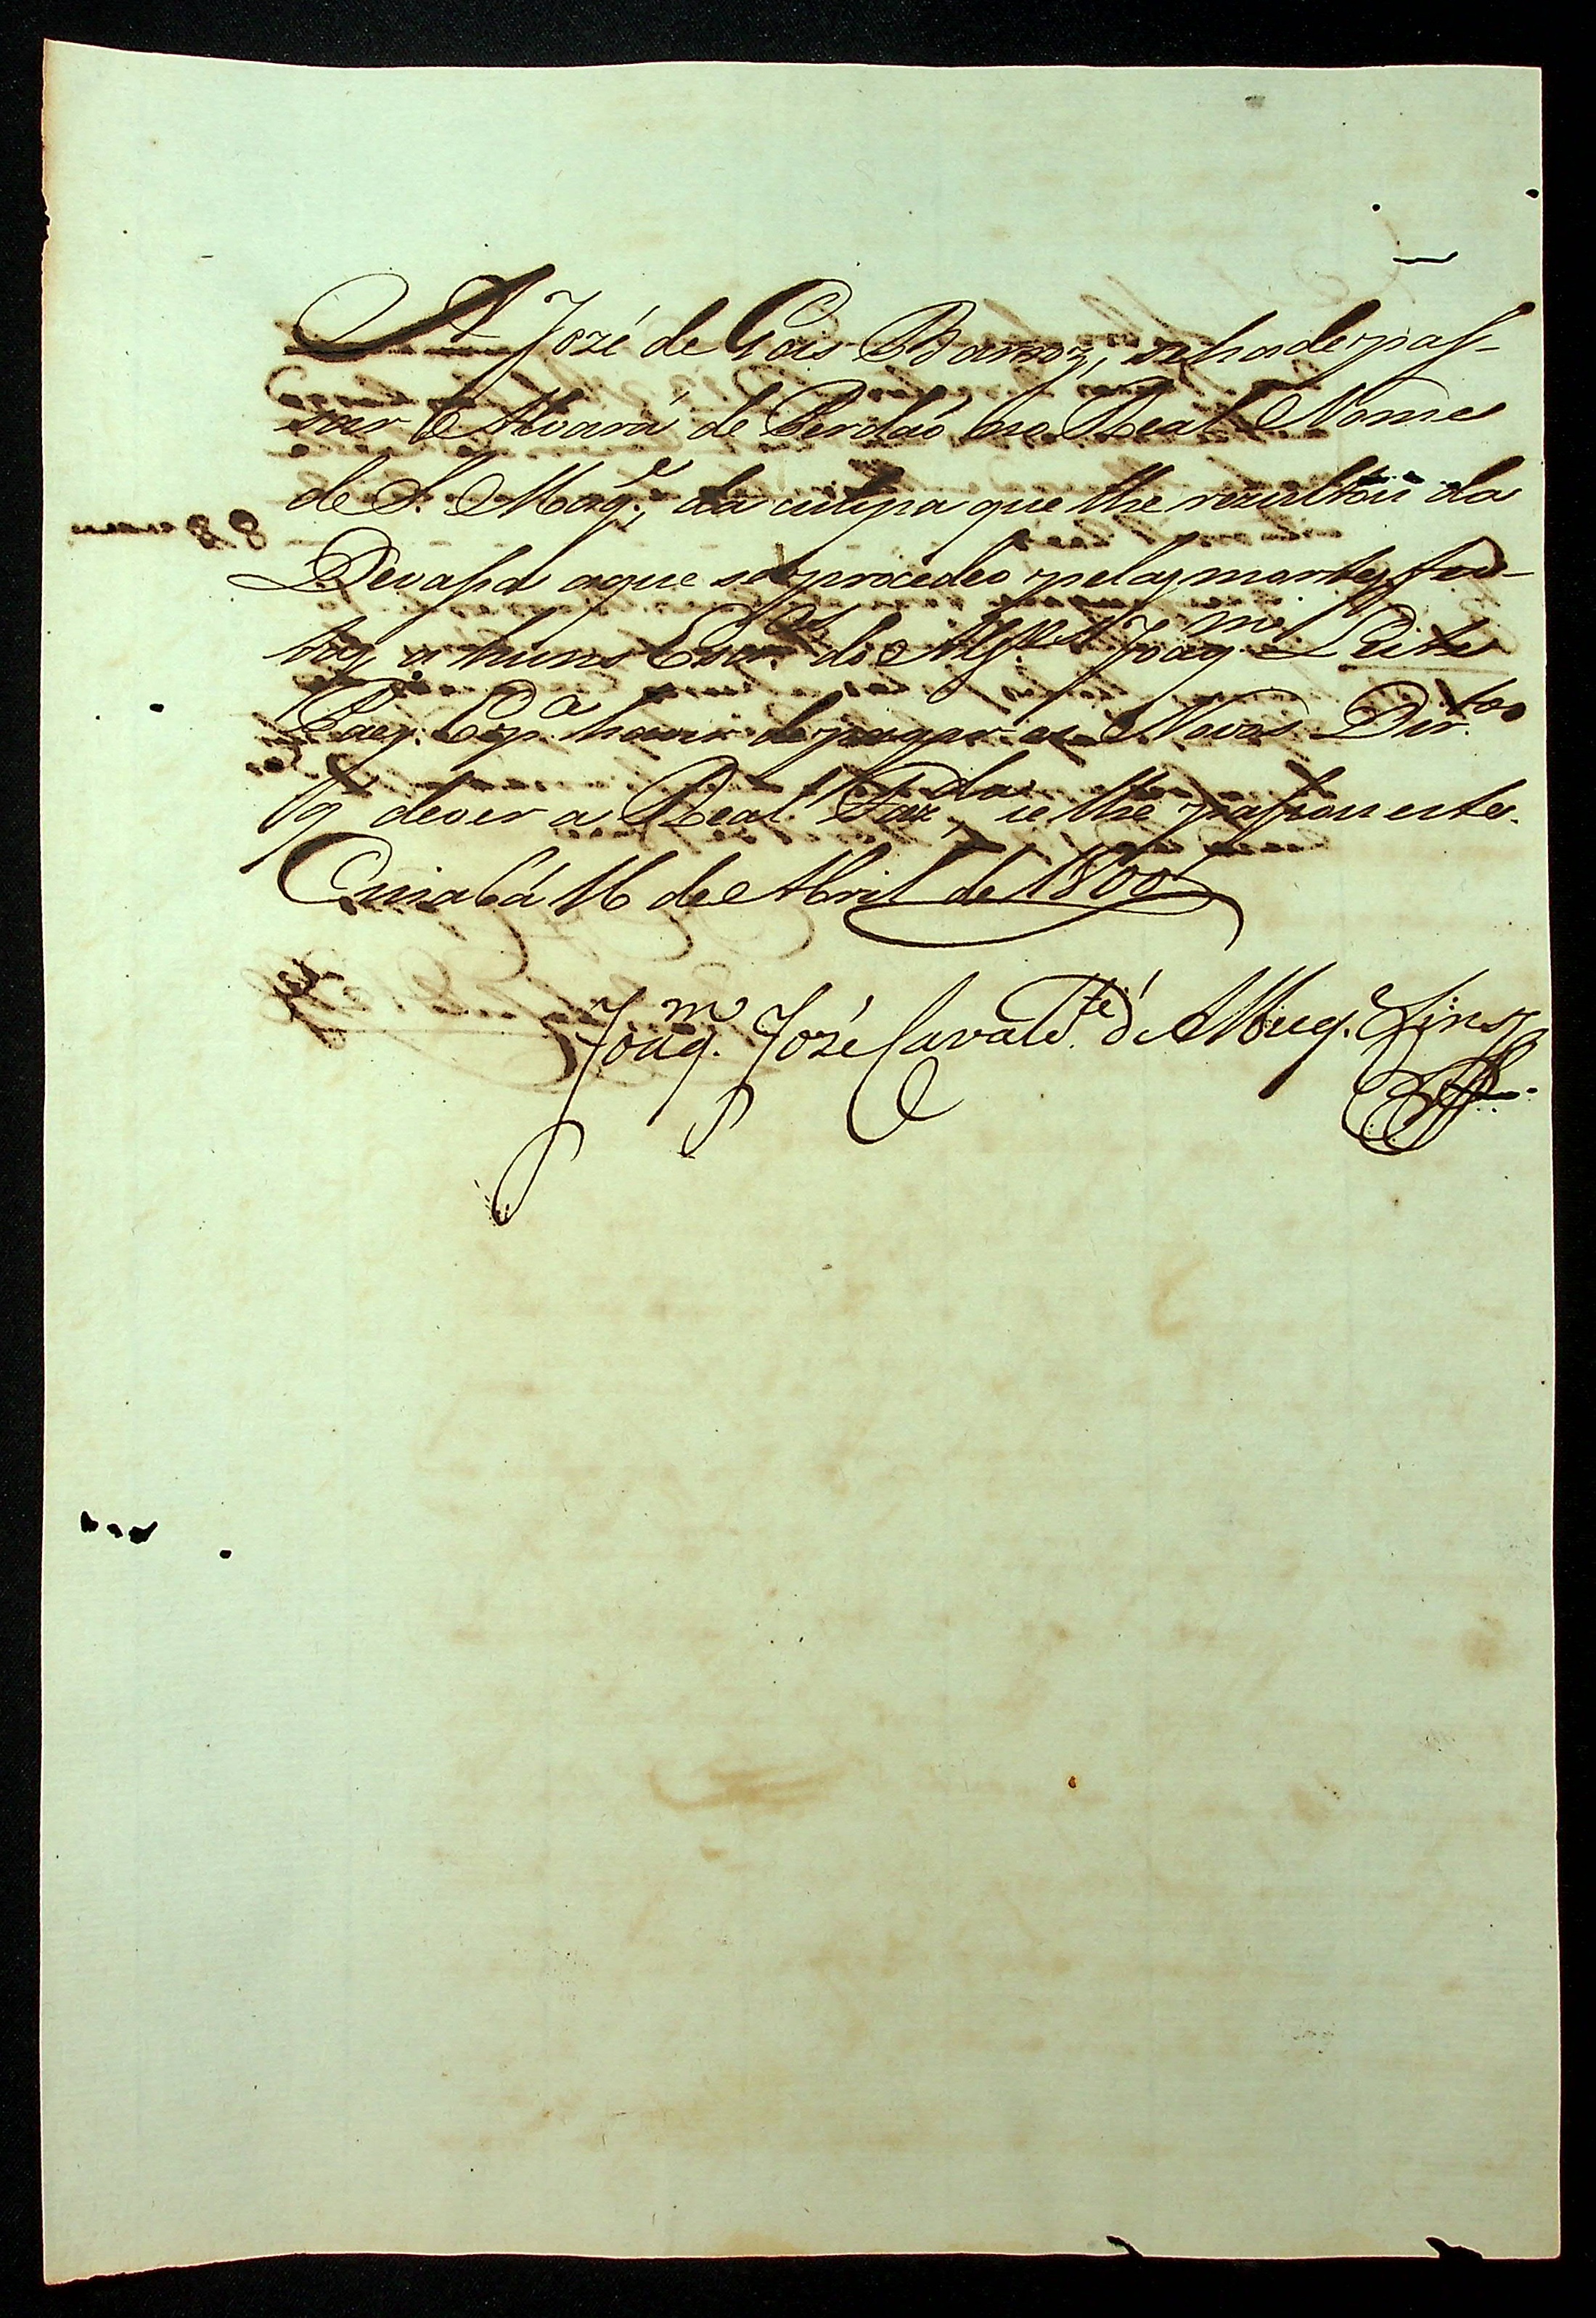 A Jozé de Gois Barros, se ha de pas-
sar Alvará de Perdaõ no Real Nome
de S. Mag.e, da culpa que lhe rezultou da
Devassa aque se procedeo pelas mortes, fei-
tas a huns Escr.os do Alf.es Joaq.m Leite
Per.a E p.a haver de pagar os Novos Dir.tos
q dever a Real Faz.da, se lhe passou este.
Cuiabá 16 de Abril de 1800
Joaq.m José Cavalc.te d'Albuq.e Lins